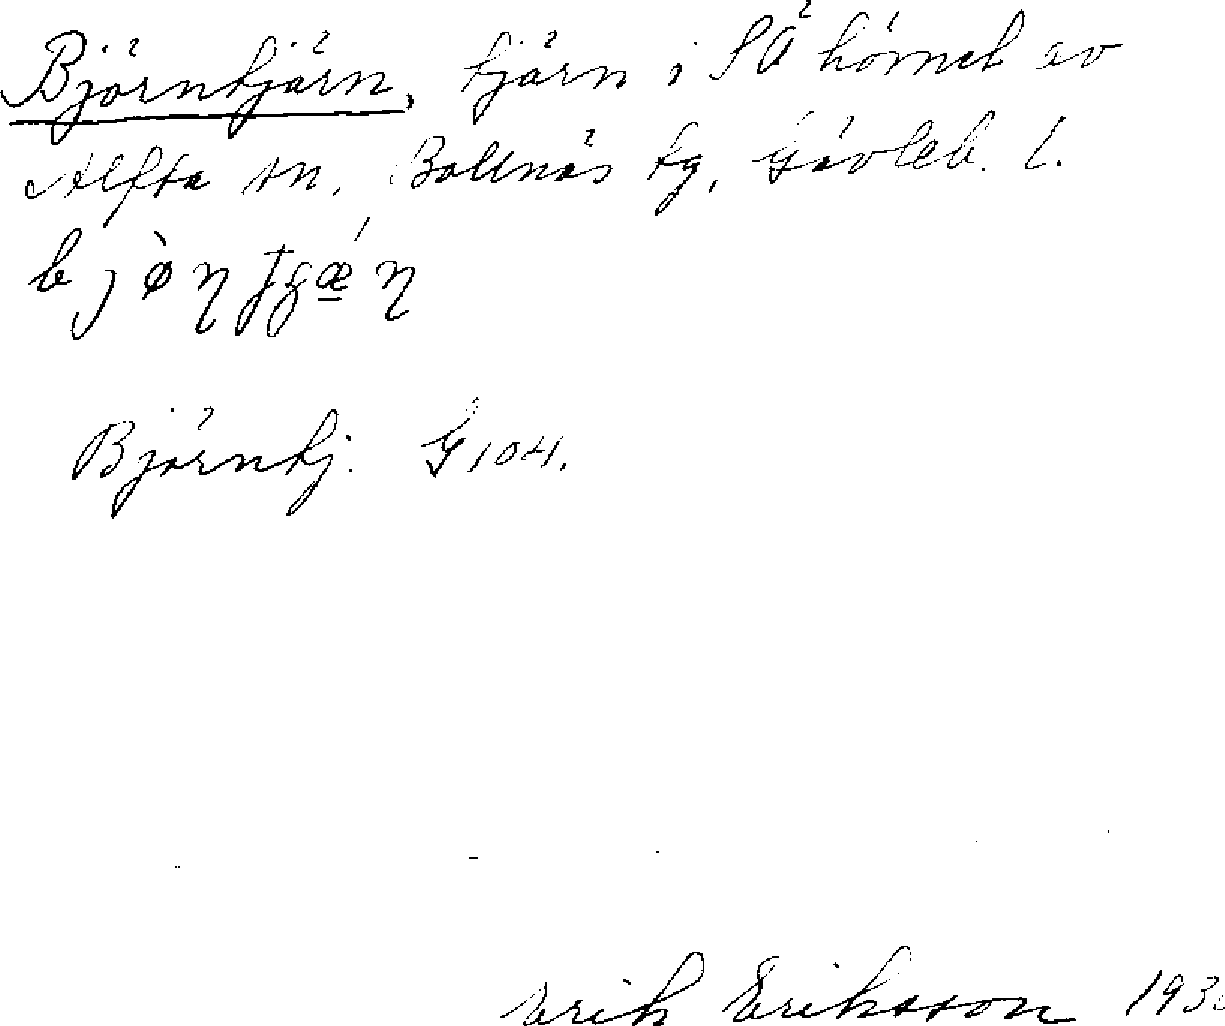 Björntjärn, tjärn i SÖ hörnet av
Alfta sn, Bollnäs tg, Gävleb. l.
Björntj. G 104.
Erik Eriksson